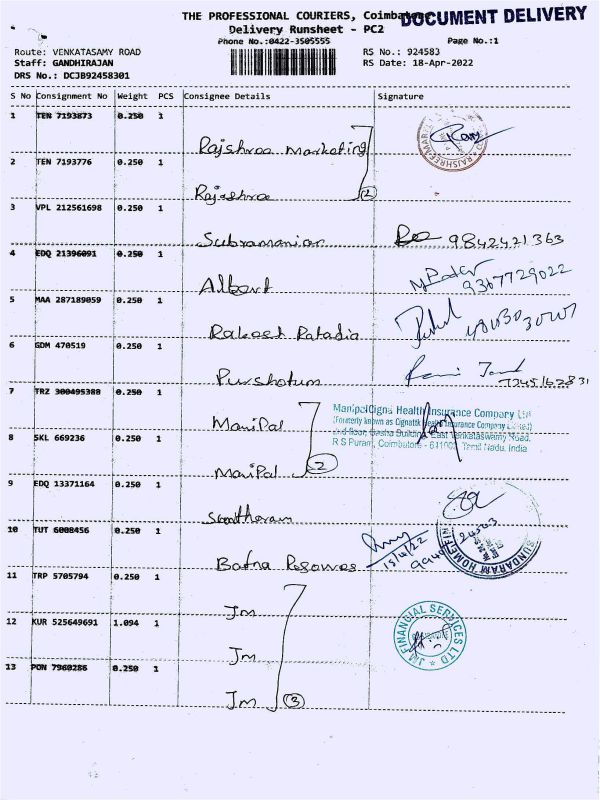 THE PROFESSIONAL COURIERS, Coimbatore
DOCUMENT DELIVERY
Delivery Runsheet - PC2
Phone No.:0422-3505555
Page No.:1
Route: VENKATASAMY ROAD
RS No.: 924583
Staff: GANDHIRAJAN
RS Date: 18-Apr-2022
DRS No.: DCJB92458301
S No Consignment No Weight PCS Consignee Details Signature
1 TEN 7193873 0.250 1
Rajshree Marketing
2 TEN 7193776 0.250 1
Rajashree 2
3 VPL 212561698 0.250 1
Subramanian 9842421363
4 EDQ 21396091 0.250 1
Albert 9367729022
5 MAA 287189059 0.250 1
Rakesh
6 GDM 470519 0.250 1
Purshotum
7 TRZ 300495388 0.250 1
ManiPal
ManipalCigna Health Insurance Company Ltd
(Formerly known as CignaTTK Health Insurance Company Limited)
East Venkataswamy Road,
R S Puram, Coimbatore - Tamil Nadu, India
8 SKL 669236 0.250 1
ManiPal 2
9 EDQ 13371164 0.250 1
SUNDARAM HOME
10 TUT 6008456 0.250 1
Batra
11 TRP 5705794 0.250 1
Jm
12 KUR 525649691 1.094 1
Jm
JM FINANCIAL SERVICES LTD
13 PON 7960286 0.250 1
Jm 3